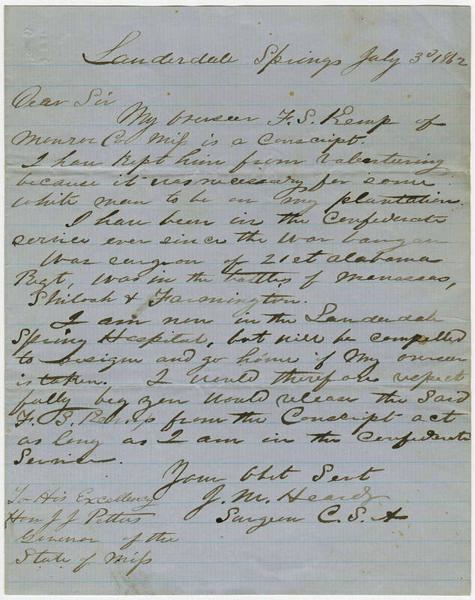 Lauderdale Springs July 3d 1862
Dear Sir
My overseer F. S. Kemp of
Monroe Co Miss is a conscript.
I have kept him from valentering
because it was necessary for some
white man to be on my plantation
I have been in the Confederate
service ever since the war bangan
Was surgeon of 21st Alabama
Regt, was in the battles of Menassas,
Shiloah & Farmington.
I am now in the Lauderdale
Spring Hospital, but will be compelled
to resign and go home if my overseer
is taken. I would therefore respect
fully beg you would release the said
F. S. Kemp from the Conscript act
as long as I am in the Confederate
Service.
Your Obt Sert
J. M. Heard
Surgeon C. S. A
To His Excellency
Hon J J Pettus
Governor of the
State of Miss